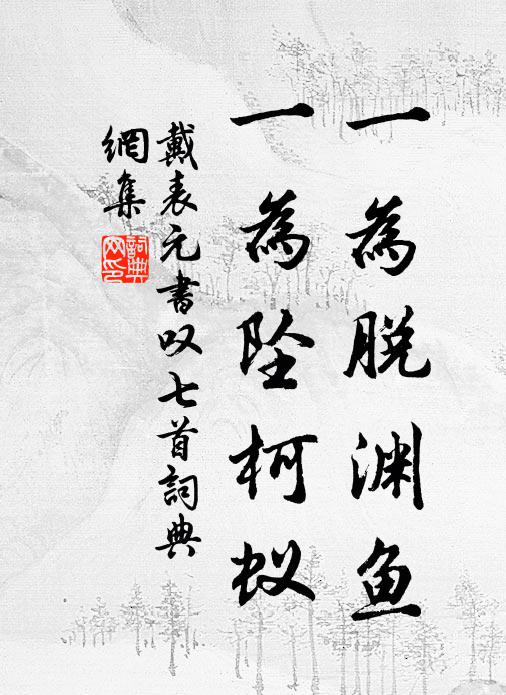 一為脱渊鱼
一為坠柯蚁
戴表元書叹七首詞典
網集
詞典
网印